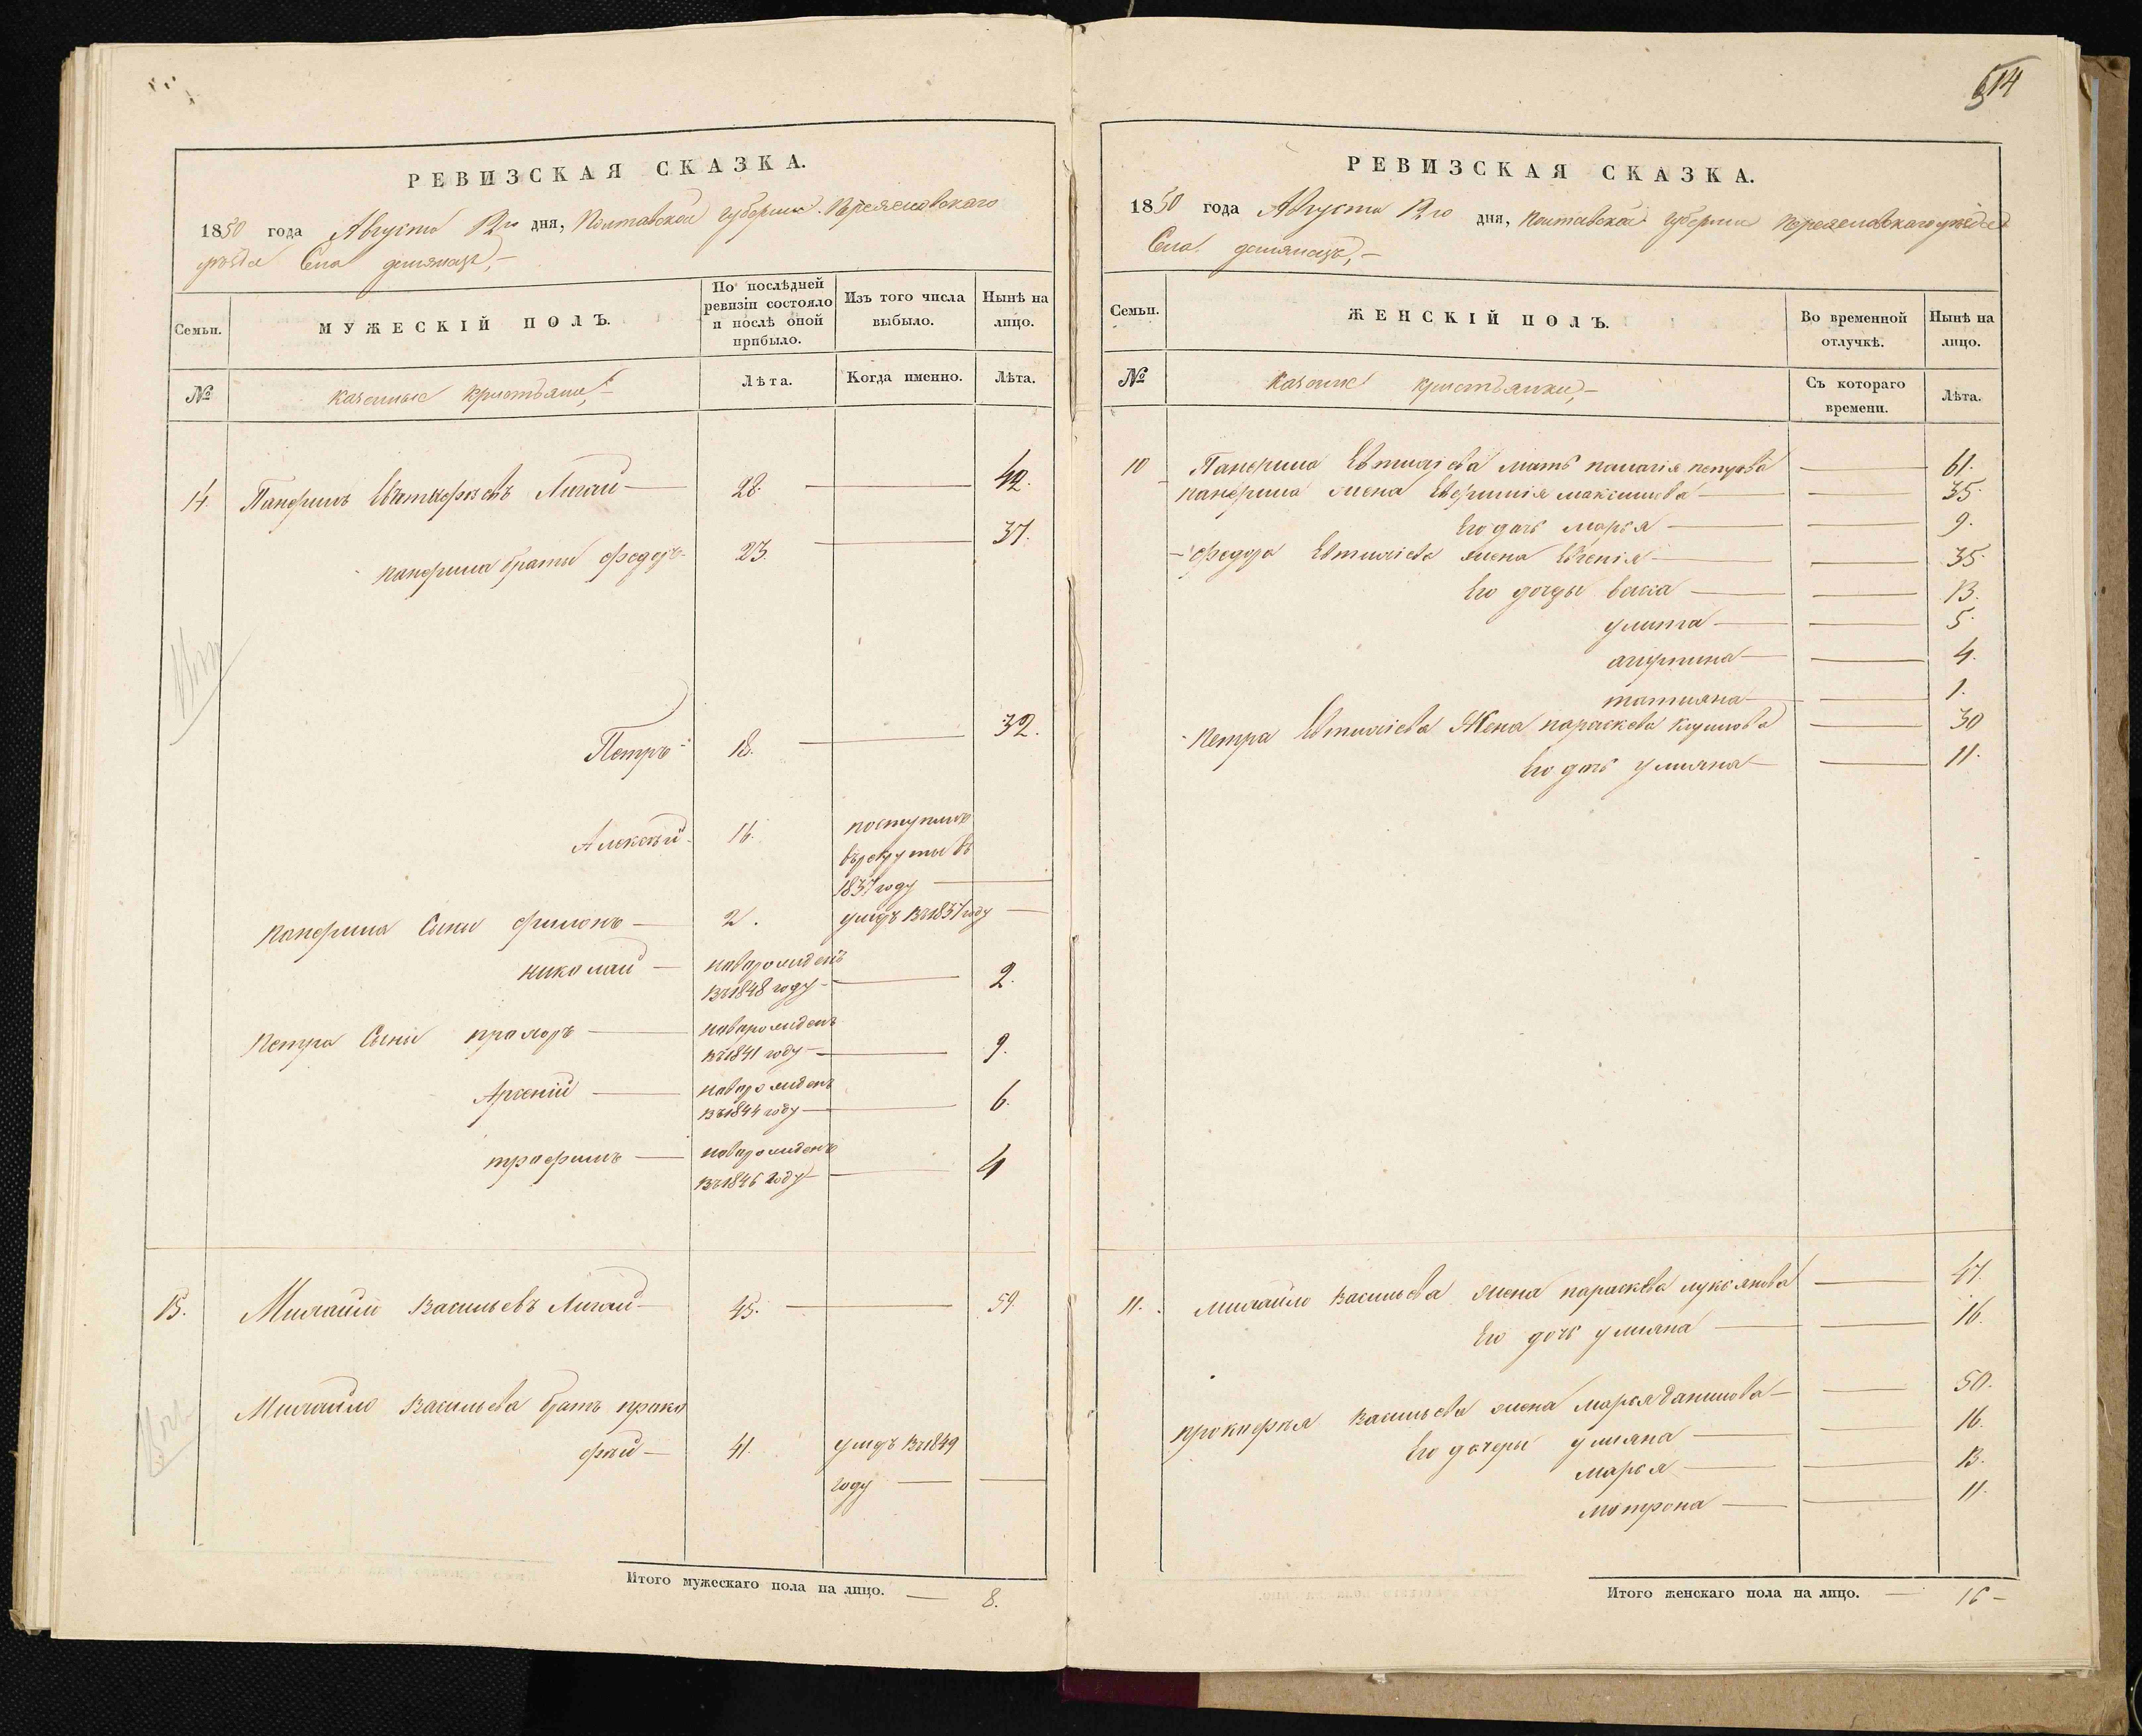 514
РЕВИЗСКАЯ СКАЗКА.
1850 года Августа 12го дня, Полтавской губернии Переяславскаго
уѣзда Села
Семьи.
МУЖЕСКІЙ ПОЛЪ.
По послѣдней ревизіи состояло и послѣ оной прибыло.
Изъ того числа выбыло.
Нынѣ на лицо.
№
казенные
Лѣта.
Когда именно.
Лѣта.
14. Панфилъ Лигай 28. 42.
панфила братья федоръ 23. 37.
Петръ 18. 32.
Алексѣй 16. поступилъ
въ рекруты въ
1837 году
панфила Сыны филонъ 2. умеръ въ 1837 году
николай новорожденъ
въ 1848 году 2.
петра Сыни прохоръ новорожденъ
въ 1841 году 9.
Арсеній новорожденъ
въ 1844 году 6.
трофимъ новорожденъ
въ 1846 году 4
15. Михайло Васильевъ Лигай 45. 59.
Михайло Васильева братъ проко
фѣй 41. умеръ въ 1849
году
Итого мужескаго пола на лицо. 8.
РЕВИЗСКАЯ СКАЗКА.
1850 года Августа 12го дня, Полтавской губерніи Переяславскаго уѣзда
Села
Семьи.
ЖЕНСКІЙ ПОЛЪ.
Во временной отлучкѣ.
Нынѣ на лицо.
№
Съ котораго времени.
Лѣта.
10 Панфила Евтихіева мать палагія петрова 61.
панфила жена Евфимія максимова 35.
Его дочь марья 9.
федора Евтихіева жена Евгенія 35
Его дочери васса 13.
улита 5.
агрипина 4.
татияна 1.
петра Евтихіева Жена параскева климова 30
Его дочь улияна 11.
11. михайло васильева жена параскева лукьянова 47.
Его дочь улияна 16.
прокофья васильева жена марья данилова 50.
Его дочери улияна 16.
марья 13.
мотрона 11.
Итого женскаго пола на лицо. 16